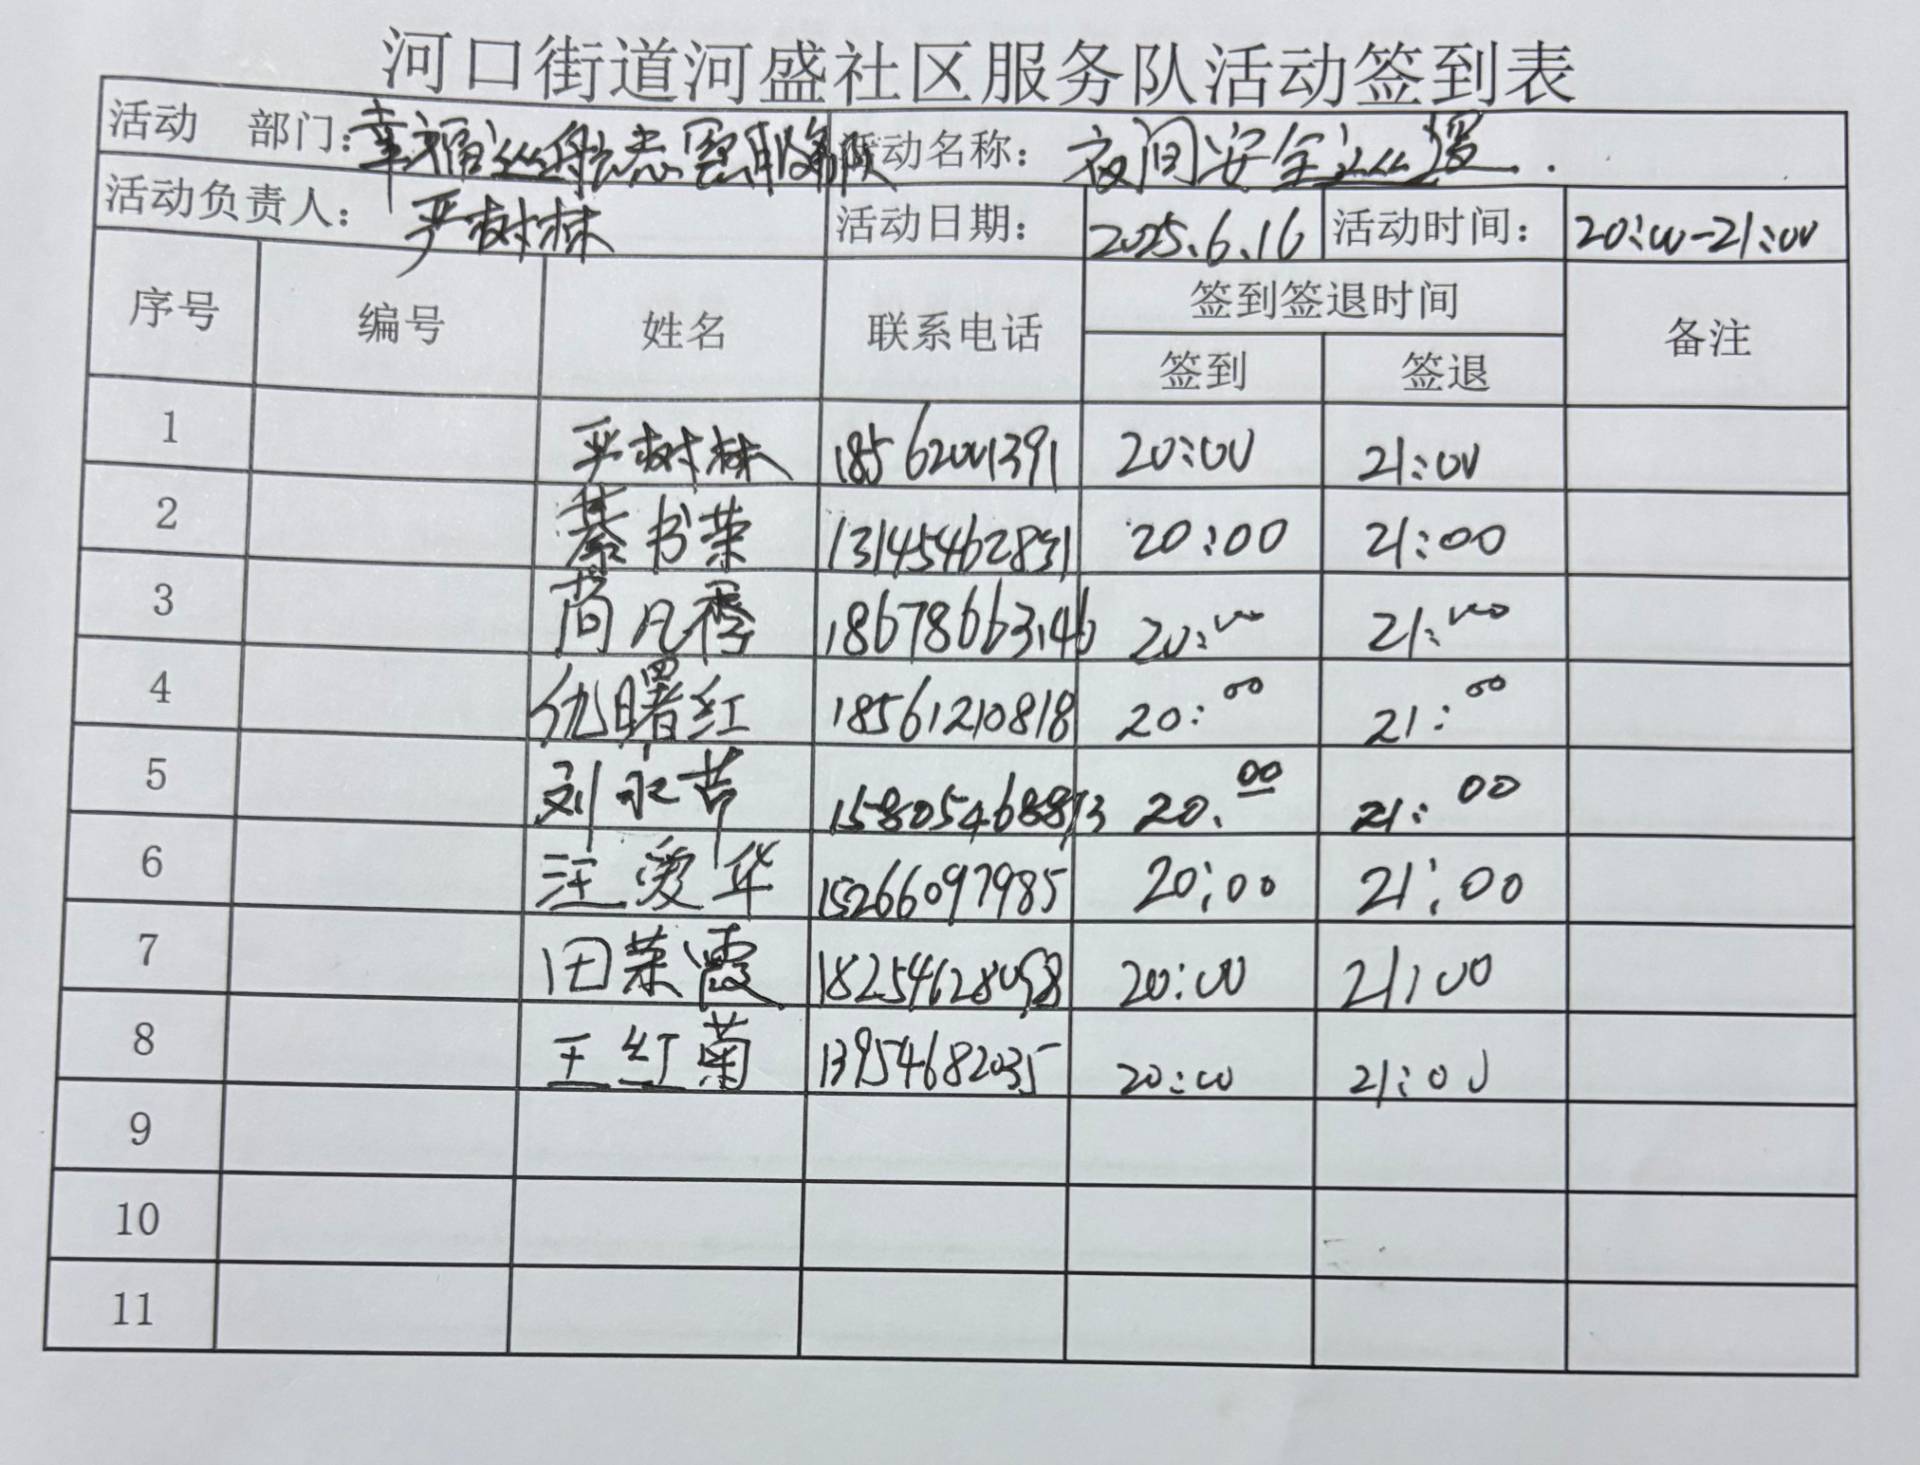 河口街道河盛社区服务队活动签到表
活动 部门：幸福巡航志愿服务队 活动名称： 夜间安全巡逻.
活动负责人： 严树林 活动日期： 2025.6.16 活动时间： 20:00-21:00
序号 编号 姓名 联系电话 签到签退时间 备注
签到 签退
1 严树林 18562001391 20:00 21:00
2 綦书荣 13145462831 20:00 21:00
3 尚凡香 18678663146 20:00 21:00
4 仇曙红 18561210818 20:00 21:00
5 刘永芹 15805468873 20:00 21:00
6 汪爱华 15266097985 20:00 21:00
7 田荣霞 18254628098 20:00 21:00
8 王红菊 13954682035 20:00 21:00
9
10
11